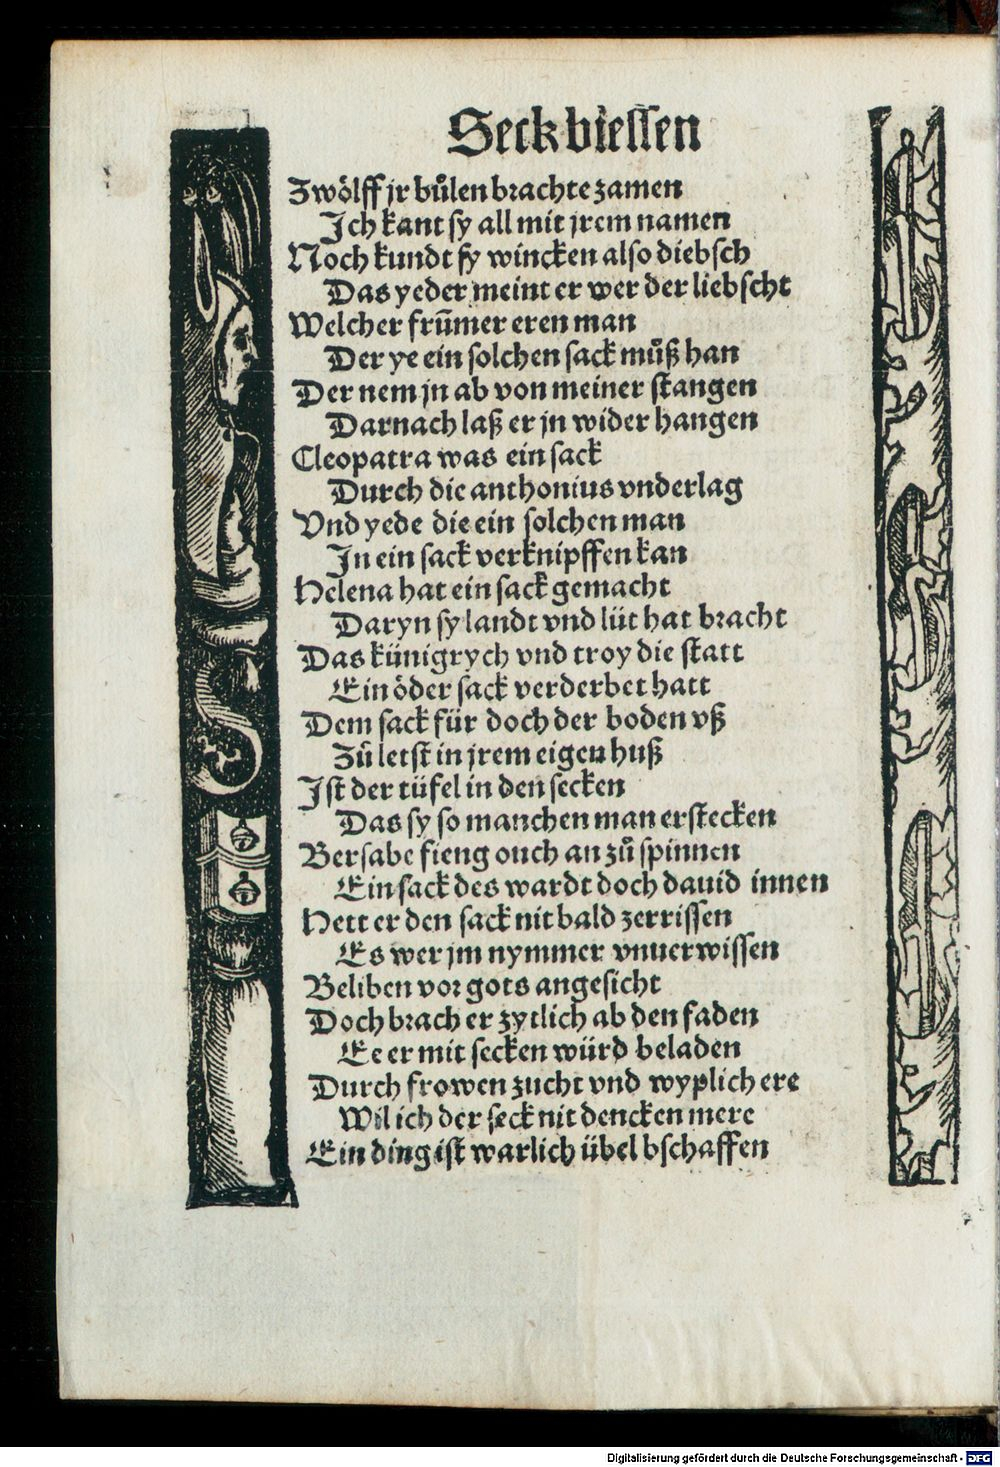 Seck bſessen
Zwölff jr bůlen brachte zamen
Ich kant sy all mit jrem namen
Noch kundt sy wincken also diebsch
Das yeder meint er wer der liebscht
Welcher frūmer eren man
Der ye ein solchen sack můß han
Der nem jn ab von meiner stangen
Darnach laß er jn wider hangen
Cleopatra was ein sack
Durch die anthonius vnderlag
Vnd yede die ein solchen man
In ein sack verknipffen kan
Helena hat ein sack gemacht
Daryn sy landt vnd lüt hat bracht
Das künigrych vnd troy die statt
Ein öder sack verderbet hatt
Dem sack für doch der boden vß
Zů letst in jrem eigen huß
Ist der tüfel in den secken
Das sy so manchen man erstecken
Bersabe fieng ouch an zů spinnen
Ein sack des wardt doch dauid innen
Hett er den sack nit bald zerrissen
Es wer jm nymmer vnuerwissen
Beliben vor gots angesicht
Doch brach er zytlich ab den faden
Ee er mit secken würd beladen
Durch frowen zucht vnd wyplich ere
Wil ich der seck nit dencken mere
Ein ding ist warlich übel bschaffen
Digitalisierung gefördert durch die Deutsche Forschungsgemeinschaft - DFG